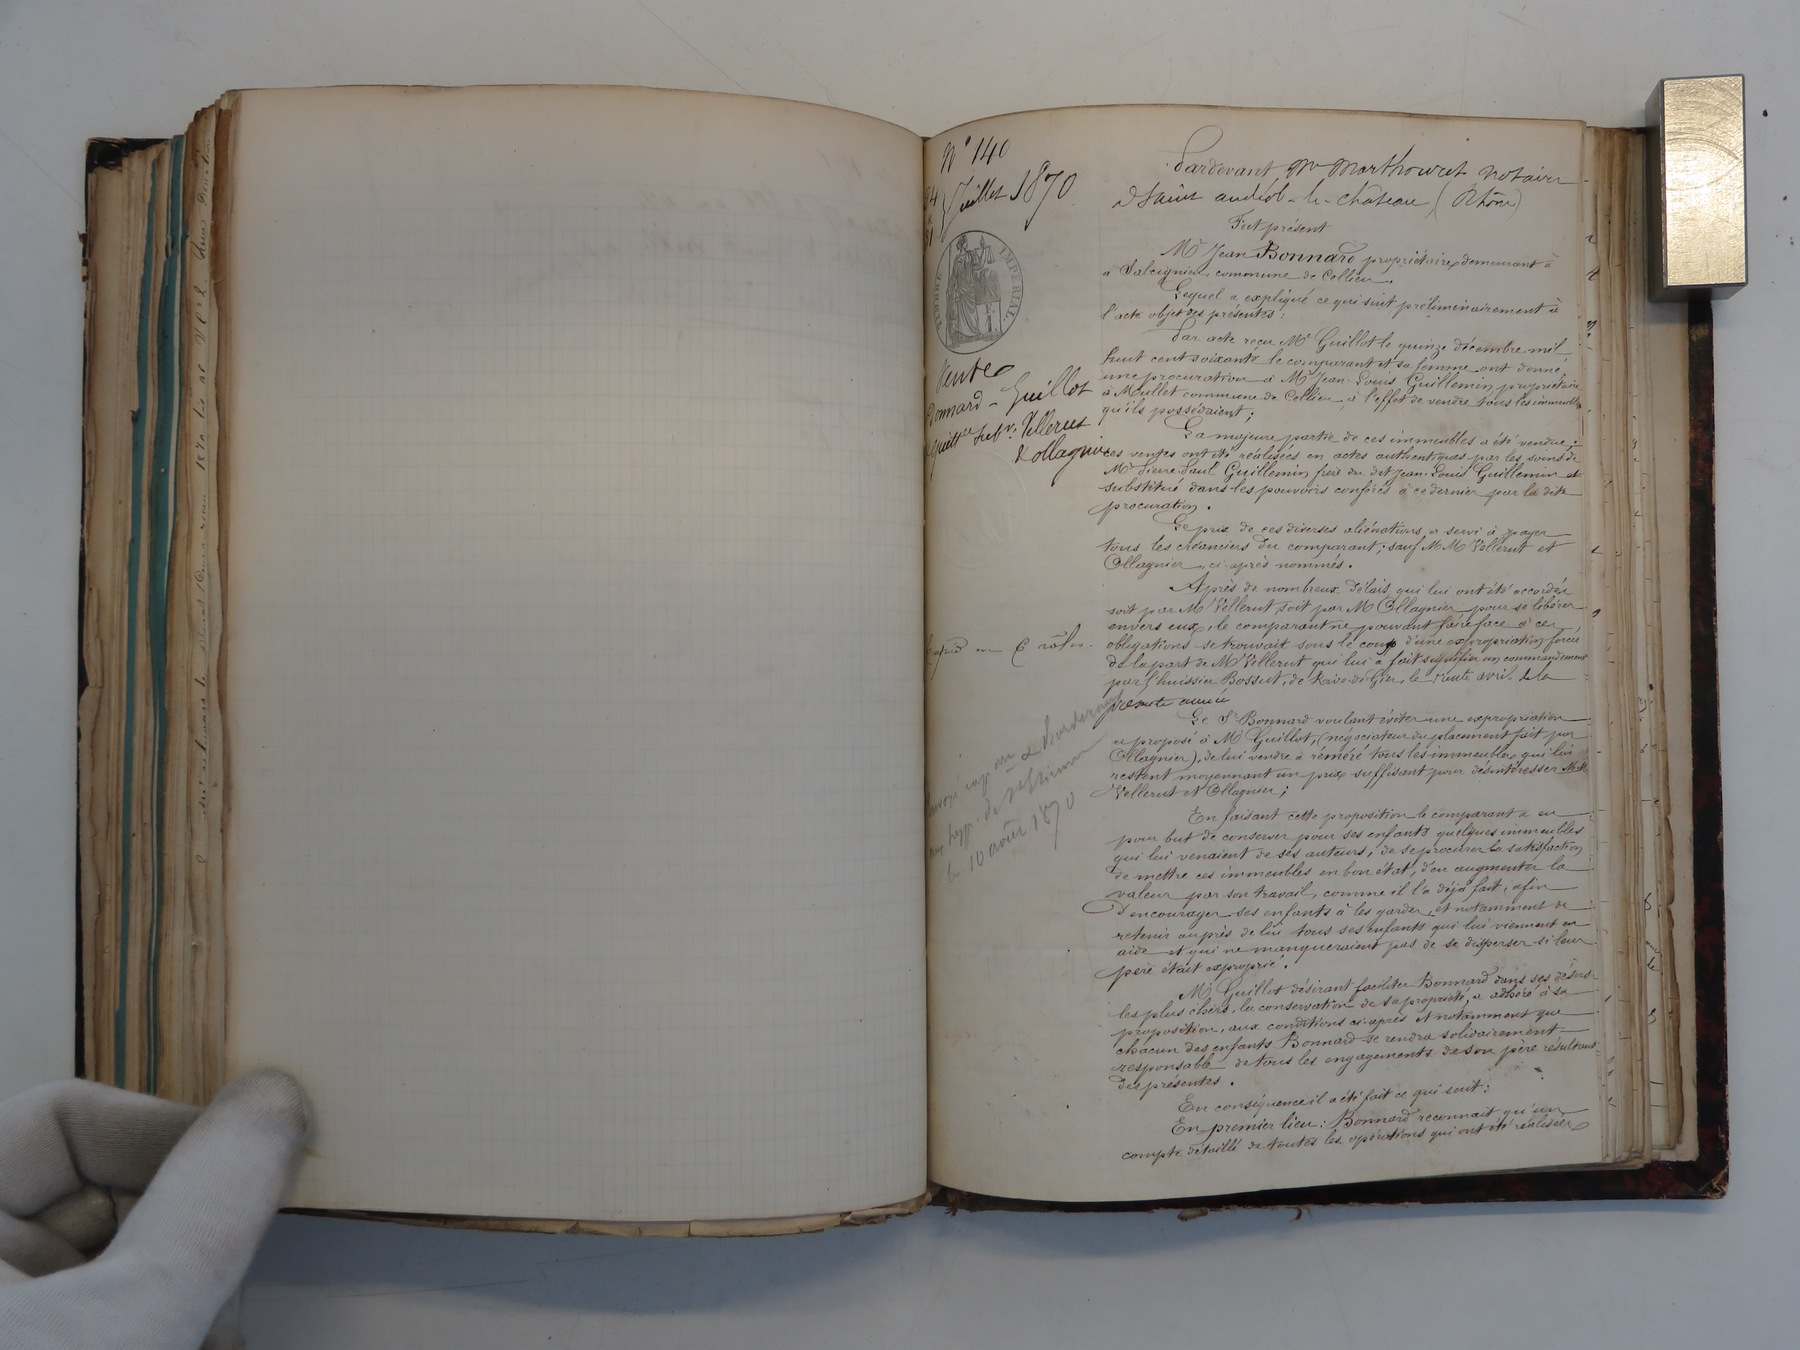 N° 140
Juillet 1870
TIMBRE IMPERIAL
Vente
Bonnard - Guillot
& quittce subve. Vellerut
& ollagnier
6 rôles.
le 10 août 1870
Pardevant Me Marthouret Notaire
à Saint andéol-le-Château (Rhône)
Fut présent
Mr Jean Bonnard propriétaire demeurant à
a Salcignieu commune de Cellieu.
Lequel a expliqué ce qui suit préliminairement à
l'acte objet des présentes :
Par acte reçu Me Guillot le quinze décembre mil
huit cent soixante le comparant et sa femme ont donné
une procuration à Mr Jean-Louis Guillemin propriétaire
à Mullet commune de Cellieu à l'effet de vendre tous les immeubles
qu'ils possédaient ;
La majeure partie de ces immeubles a été vendue ;
ces ventes ont été réalisées en actes authentiques par les soins de
Mr Pierre Paul Guillemin frère du dit Jean-Louis Guillemin et
substitué dans les pouvoirs conférés à ce dernier par la dite
procuration.
Le prix de ces diverses aliénations a servi à payer
tous les créanciers du comparant ; sauf MM Vellerut et
Ollagnier, ci-après nommés.
Après de nombreux délais qui lui ont été accordés
soit par Mr Vellerut, soit par Mr Ollagnier pour se libérer
envers eux, le comparant ne pouvant faire face à ces
obligations se trouvait sous le coup d'une expropriation forcée
de la part de Mr Vellerut qui lui a fait signifier un commandement
par l'huissier Bossut, de Rive-de-Gier, le trente avril de la
présente année
Le Sr Bonnard voulant éviter une expropriation
a proposé à Mr Guillot, (négociateur du placement fait par
Ollagnier), de lui vendre à réméré tous les immeubles qui lui
restent moyennant un prix suffisant pour désintéresser MM
Vellerut et Ollagnier ;
En faisant cette proposition le comparant a eu
pour but de conserver pour ses enfants quelques immeubles
qui lui venaient de ses auteurs, de se procurer la satisfaction
de mettre ces immeubles en bon état, d'en augmenter la
valeur par son travail, comme il l'a déjà fait, afin
d'encourager ses enfants à les garder, et notamment de
retenir auprès de lui tous ses enfants qui lui viennent en
aide et qui ne manqueraient pas de se disperser si leur
père était exproprié.
Mr Guillot désirant faciliter Bonnard dans ses désirs
les plus chers, la conservation de sa propriété, a adhéré à sa
proposition, aux conditions ci-après et notamment que
chacun des enfants Bonnard se rendra solidairement
responsable de tous les engagements de son père résultant
des présentes.
En conséquence il a été fait ce qui suit :
En premier lieu : Bonnard reconnait qu'un
compte détaillé de toutes les opérations qui ont été réalisées